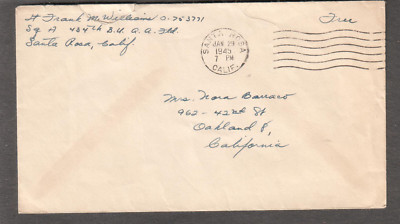 Lt Frank M. Williams O-753771
Sq A 434th B.U. A.A. Fld.
Santa Rosa, Calif.
Free
SANTA ROSA
JAN 29
1945
7 PM
CALIF.
Mrs. Nora Barraco
962 - 42nd St
Oakland 8,
California